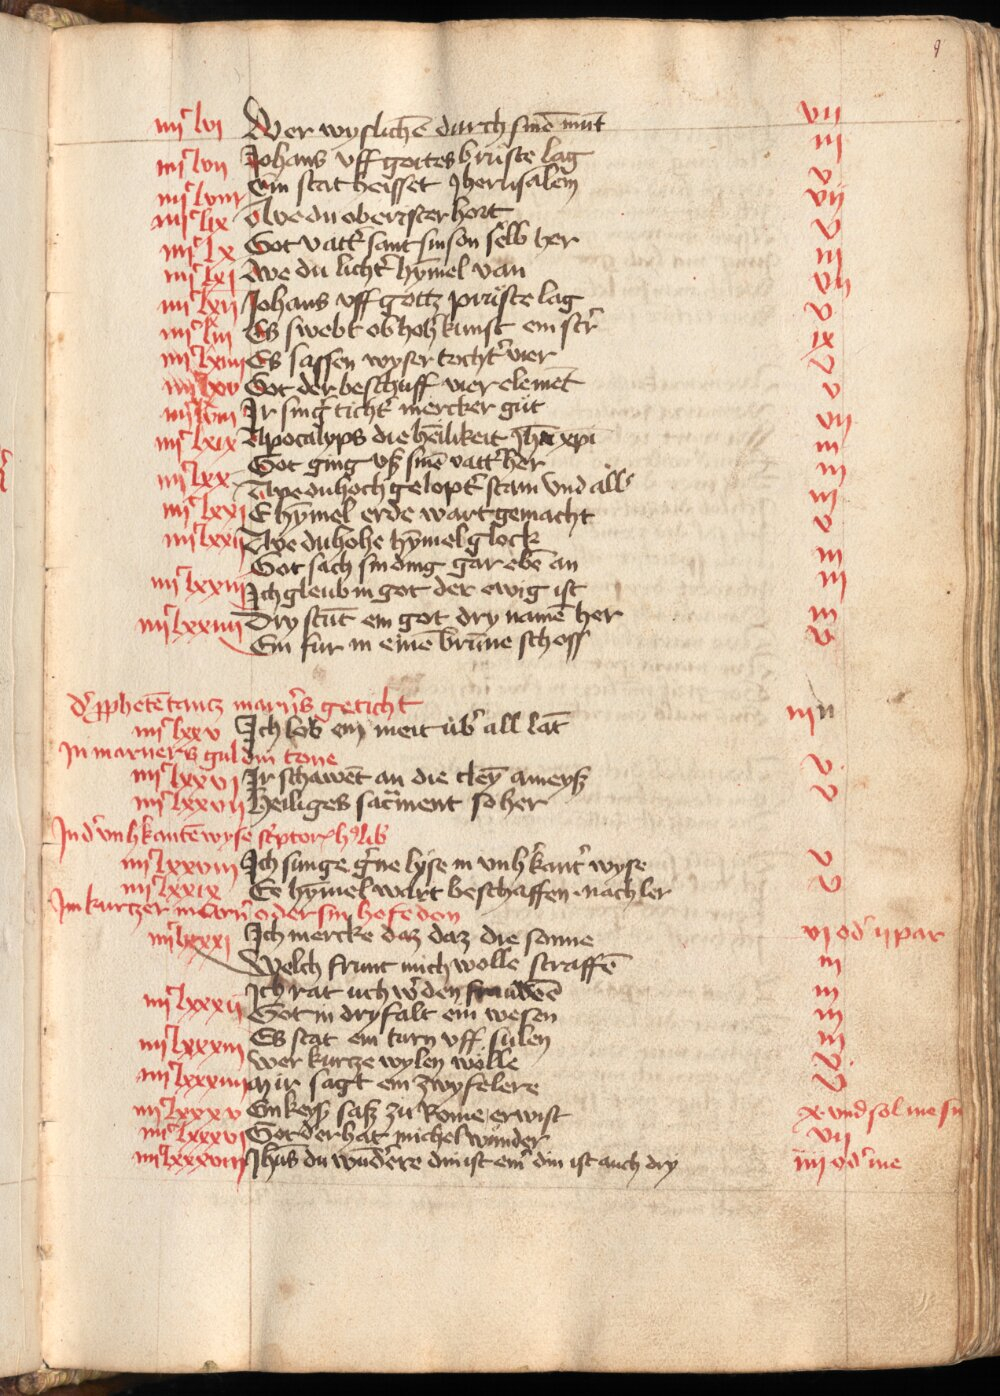 9
iiijᶜ lvi Wer wyslichē durch sinē mūt vii
iiijᶜ lvii Johans vff gottes brüste lag iii
iiijᶜ lviii Ein stat heisset Jherusalem v
iiijᶜ lix Awe du oberister hort vij
iiijᶜ lx Got vatt' sant sin son selb her v
iiijᶜ lxi Awe du licht' hȳmel van iii
iiijᶜ lxii Johans vff gottz prüste lag vii
iiijᶜ liii Es swebt ob hoh' kunst ein st'n v
iiijᶜ lxiiii Es sassen wyser tocht' vier ix
iiijᶜ lxv Got der beschuff vier elemēt v
Ir sing' ticht' mercker güt v
iiijᶜ lxix Apocalyps die heīlikeit Jhū xp̄i vii
Got ging vß sinē vatt' her iii
iiijᶜ lxx Awe du hoch gelopt' stam vnd all' iii
iiijᶜ lxxi E hȳmel erde wart gemacht iii
iiijᶜ lxxii Awe du hohe hȳmel glock v
Got sach sin ding gar ebē an iii
iiijᶜ lxxiii Ich gleub in got der ewig ist iii
iiijᶜ lxxiiii Dry stūt ein got dry namē her iii
Ein für in einē brūne schoss v
d' p̄phetē tantz marn's geticht
iiijᶜ lxxv Ich lob ein meit üb' all lāt iii
In marners guldin tone
iiijᶜ lxxvi Ir schawēt an die cleȳ ameyß v
iiijᶜ lxxvii Heiliges sacͬment so her v
In d' vnbkantē wyse
iiijᶜ lxxviii Ich singe g'ne lyse in vnb'kant' wyse v
iiijᶜ lxxix Ee hȳmel wart beschaffen nach ler v
Im kurtzen marn' oder sin hofedon
iiijᶜ lxxxi Ich mercke daz daz die sonne vi od' ij par
Welch frunt mich wolle straffē iii
Ich rat uch w'den frauwē iii
iiijᶜ lxxxii Got in dryfalt ein wesen iii
Es stat ein turn vff sulen iii
iiijᶜ lxxxiii Wer kurtze wylen wölle v
iiijᶜ lxxxiiii Mir sagt ein zwyfelere v
iiijᶜ lxxxv Ein keyß' saß zu Rome er wist x vnd sol me sin
iiijᶜ lxxxvi Got der hat michel wunder vii
iiijᶜ lxxxvii Jhūs du wūd'ere din ist ein' din ist auch dry iiij od' me